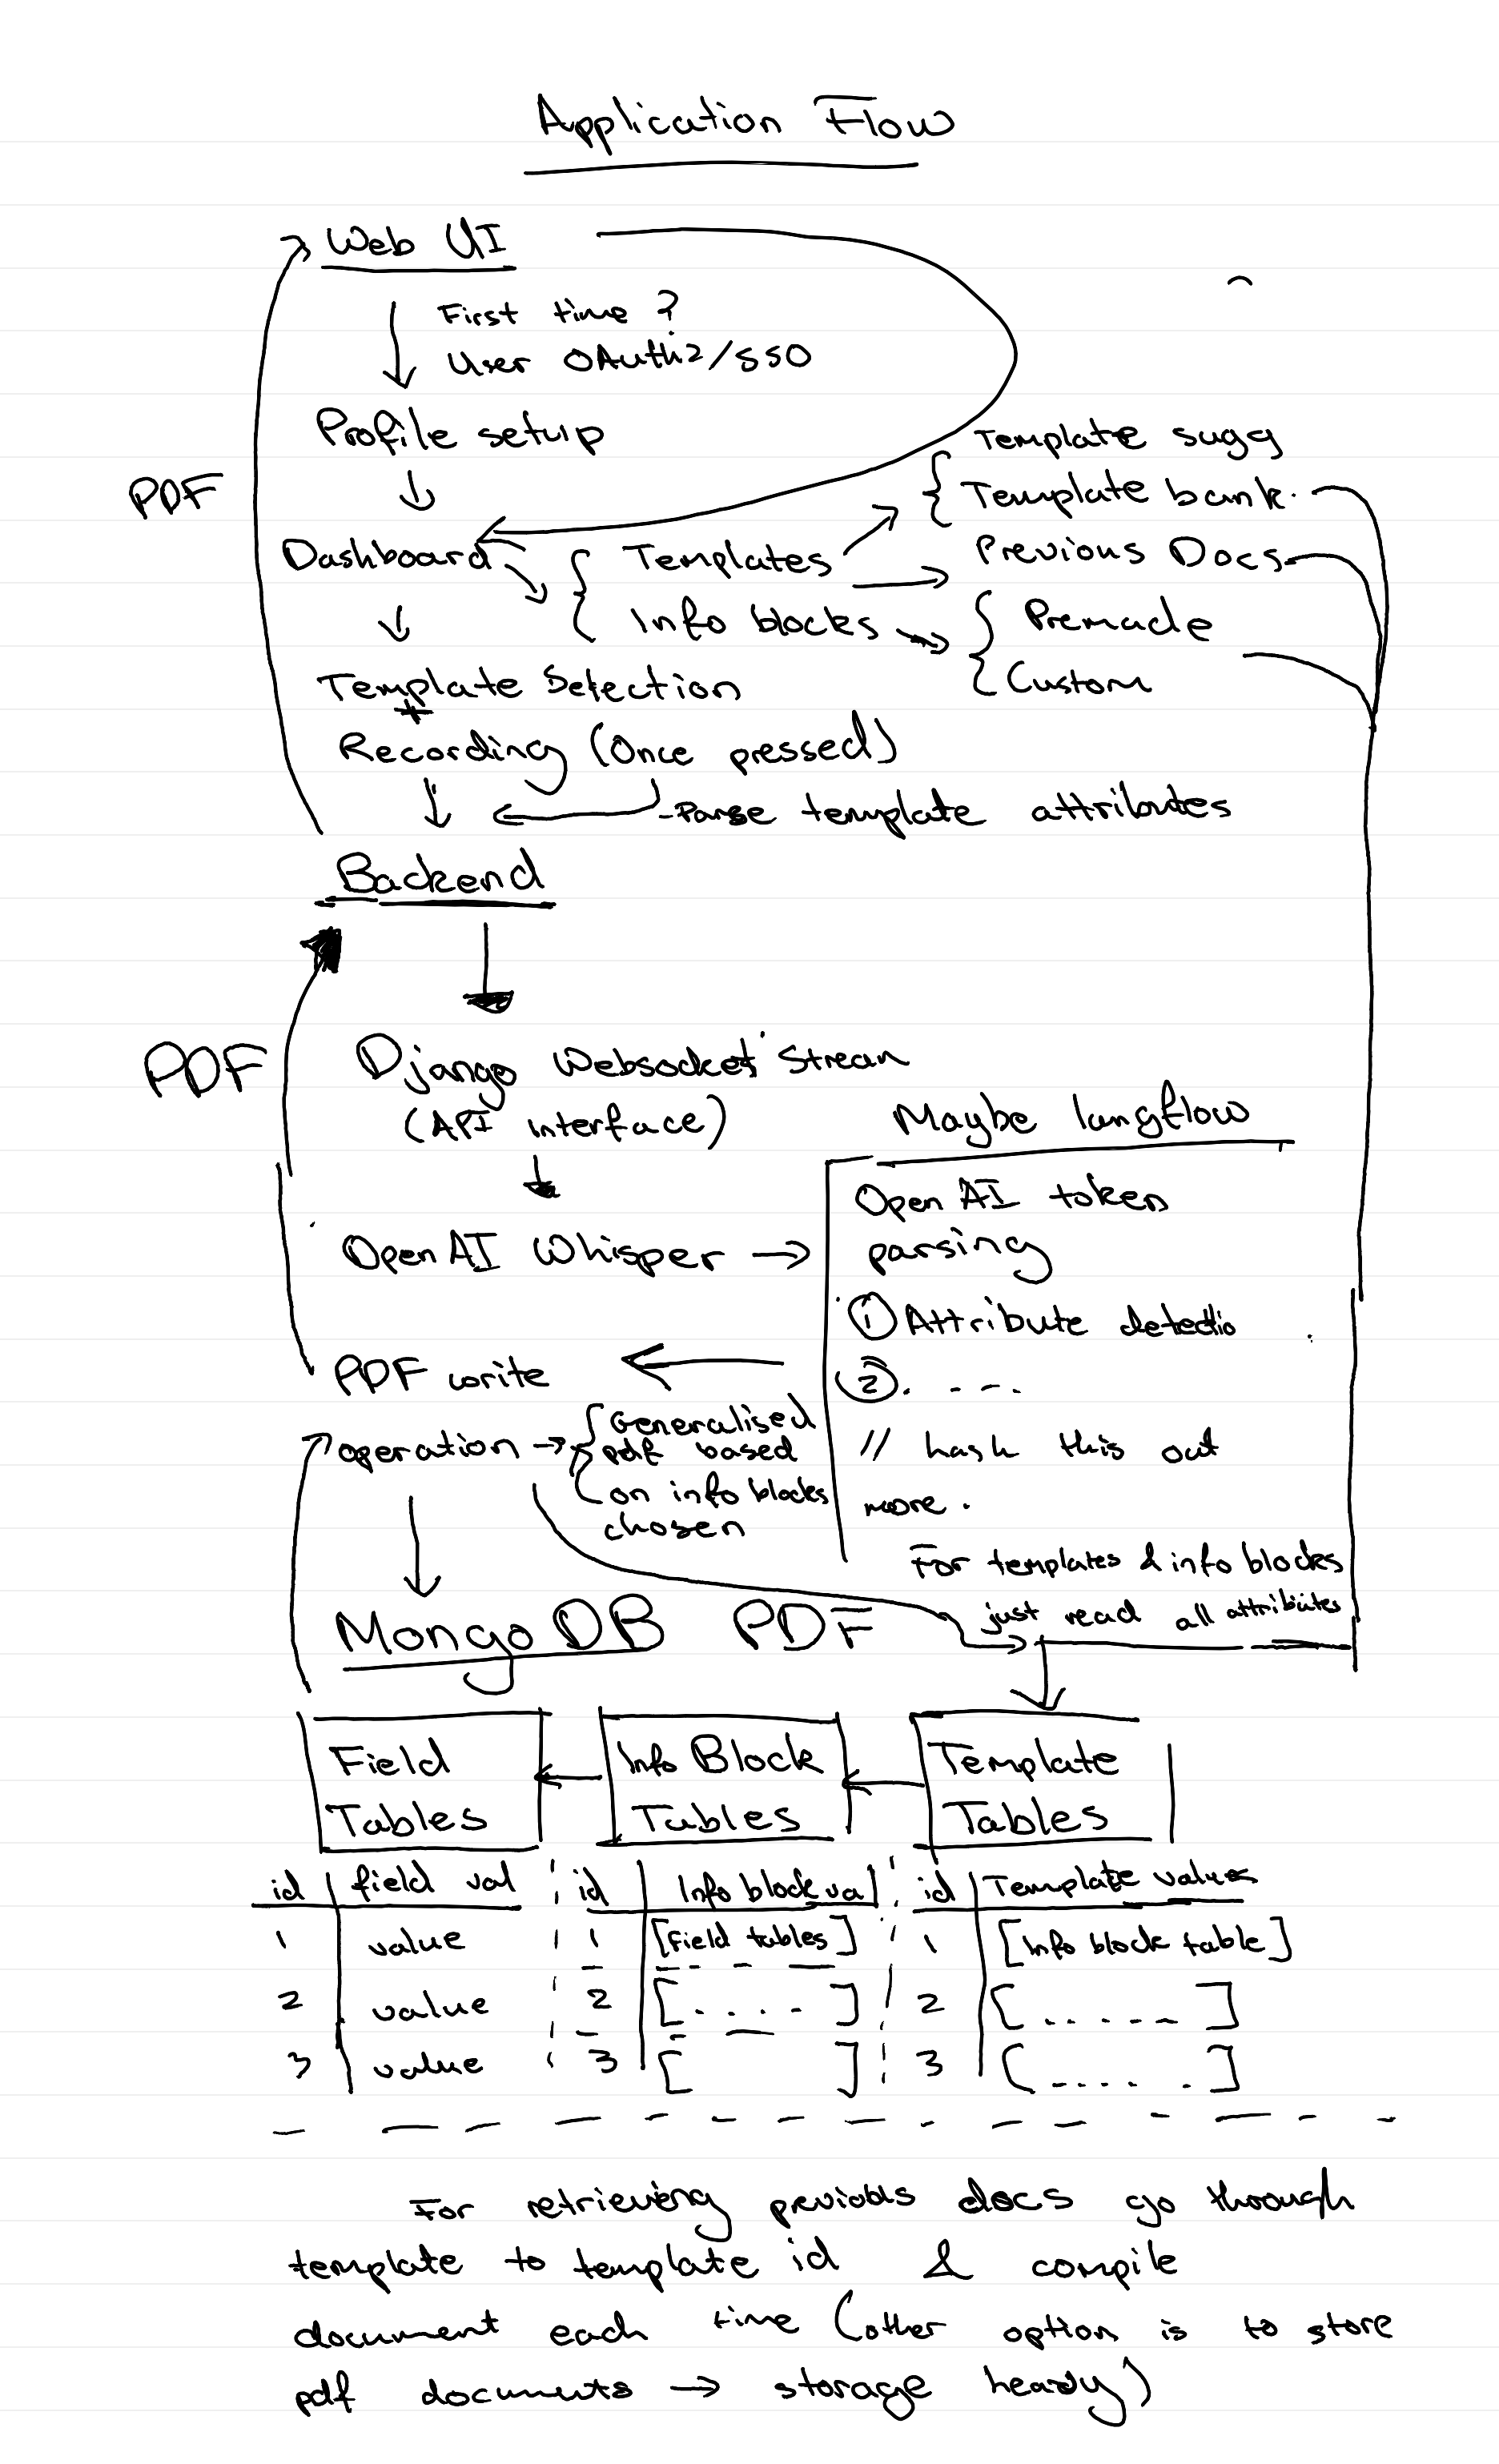 Application Flow
Web UI
First time?
User OAuth2/SSO
Profile setup
PDF
Template sugg
Template bank.
Previous Docs
Dashboard
Templates
Info blocks
Premade
Custom
Template Selection
+
Recording (Once pressed)
- Parse template attributes
Backend
PDF
Django Websocket Stream
(API interface)
Maybe langflow
OpenAI Whisper
Open AI token
parsing
① Attribute detectio
②. - - - .
// hash this out
more.
PDF write
operation
Generalised
pdf based
on info blocks
chosen
For templates & info blocks
just read all attributes
MongoDB PDF
Field
Tables
Info Block
Tables
Template
Tables
id field val id Info block val id Template values
1 value 1 [Field tables] 1 [Info block table]
2 value 2 [. . . .] 2 [. . . . . .]
3 value 3 [ ] 3 [. . . . . .]
For retrieving previous docs go through
template to template id & compile
document each time (other option is to store
pdf documents → storage heavy)